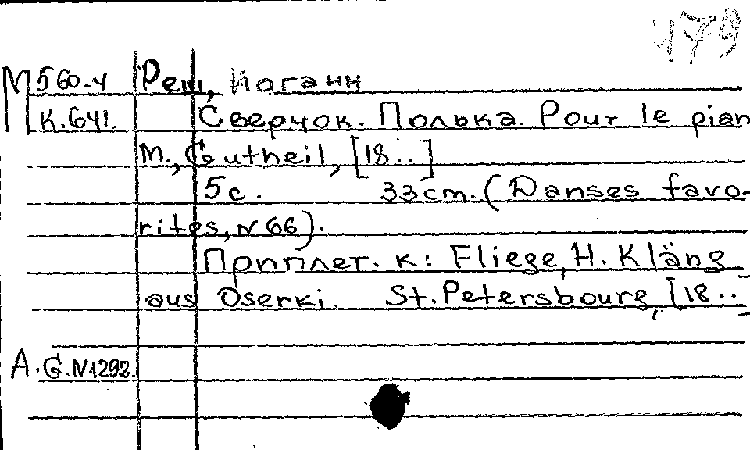 479
М 560-4 Реш, Иоганн
К.641. Сверчок. Полька. Pour le pian
M., Gutheil, [18..]
5 с. 33 cm. (Danses favo-
rites, N 66).
Приплет. к: Fliege, H. Kläng
aus Oserki. St. Petersbourg, [18..
A.G.N1292.